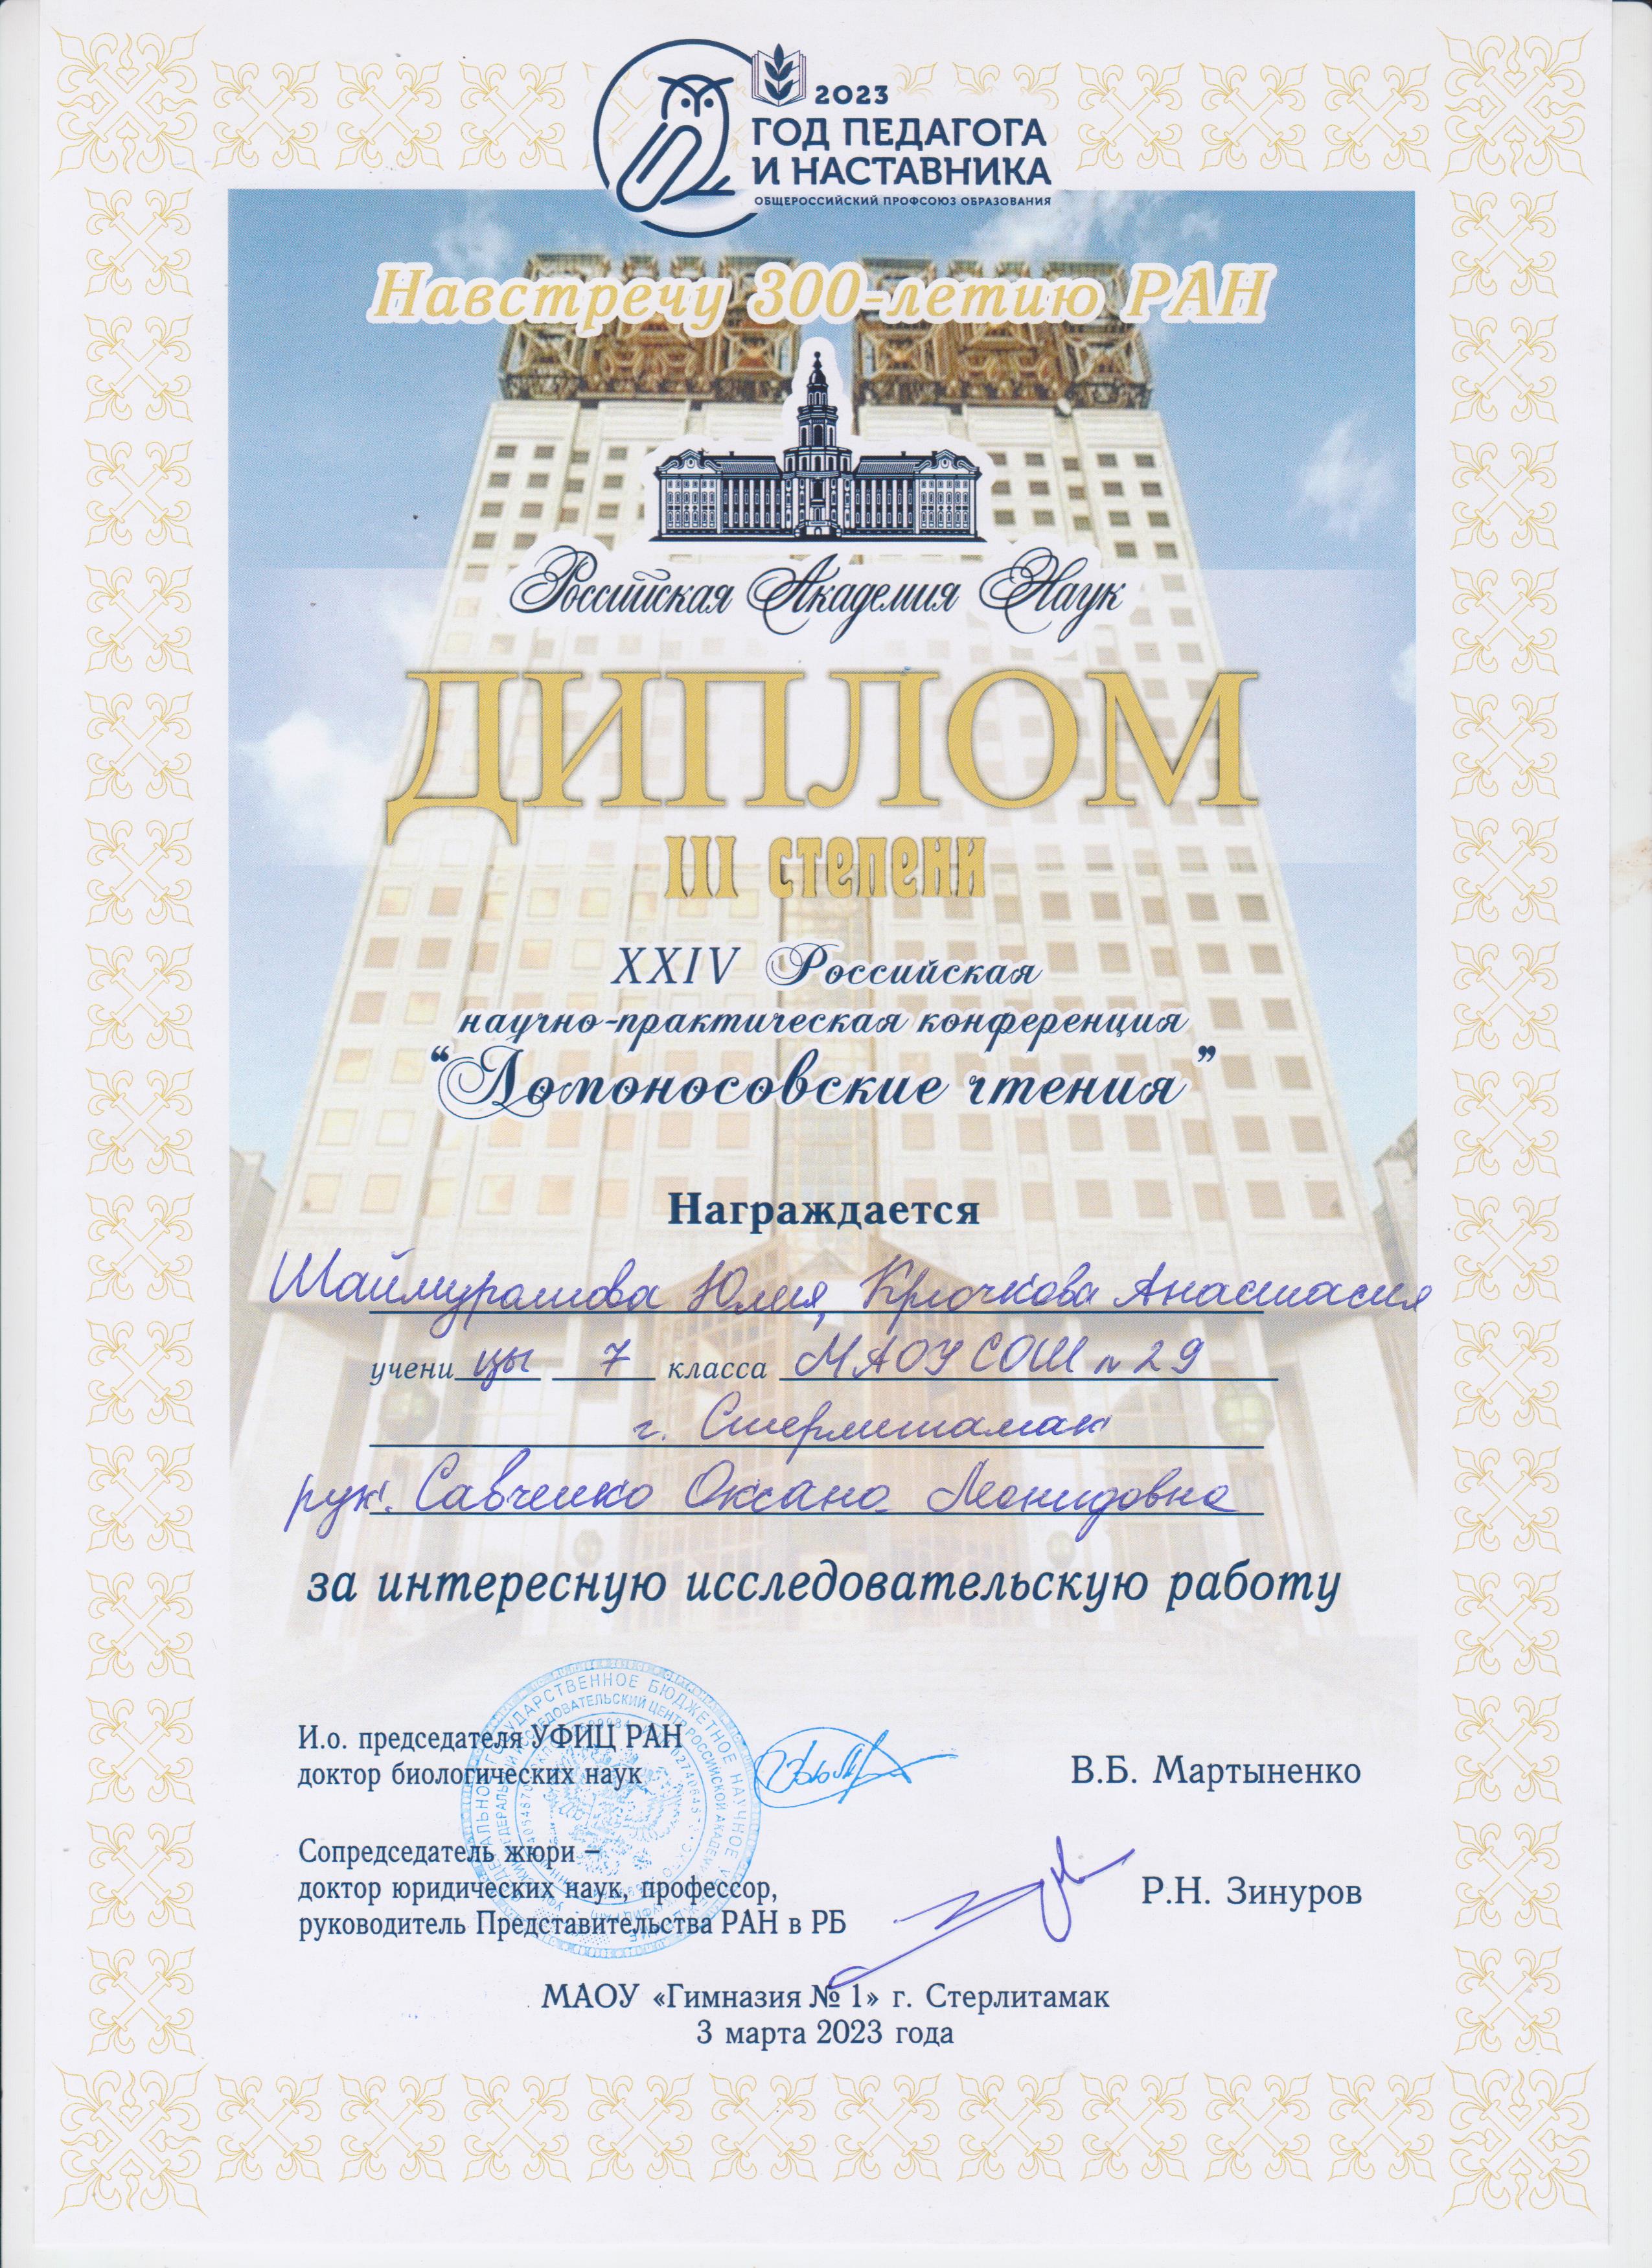 2023
ГОД ПЕДАГОГА
И НАСТАВНИКА
ОБЩЕРОССИЙСКИЙ ПРОФСОЮЗ ОБРАЗОВАНИЯ
Навстречу 300-летию РАН
Российская Академия Наук
ДИПЛОМ
III степени
XXIV Российская
научно-практическая конференция
“Ломоносовские чтения”
Награждается
Шаймуратова Юлия, Крючкова Анастасия
учени цы 7 класса МАОУ СОШ № 29
г. Стерлитамак
рук. Савченко Оксана Леонидовна
за интересную исследовательскую работу
И.о. председателя УФИЦ РАН
доктор биологических наук
В.Б. Мартыненко
Сопредседатель жюри –
доктор юридических наук, профессор,
руководитель Представительства РАН в РБ
Р.Н. Зинуров
МАОУ «Гимназия № 1» г. Стерлитамак
3 марта 2023 года